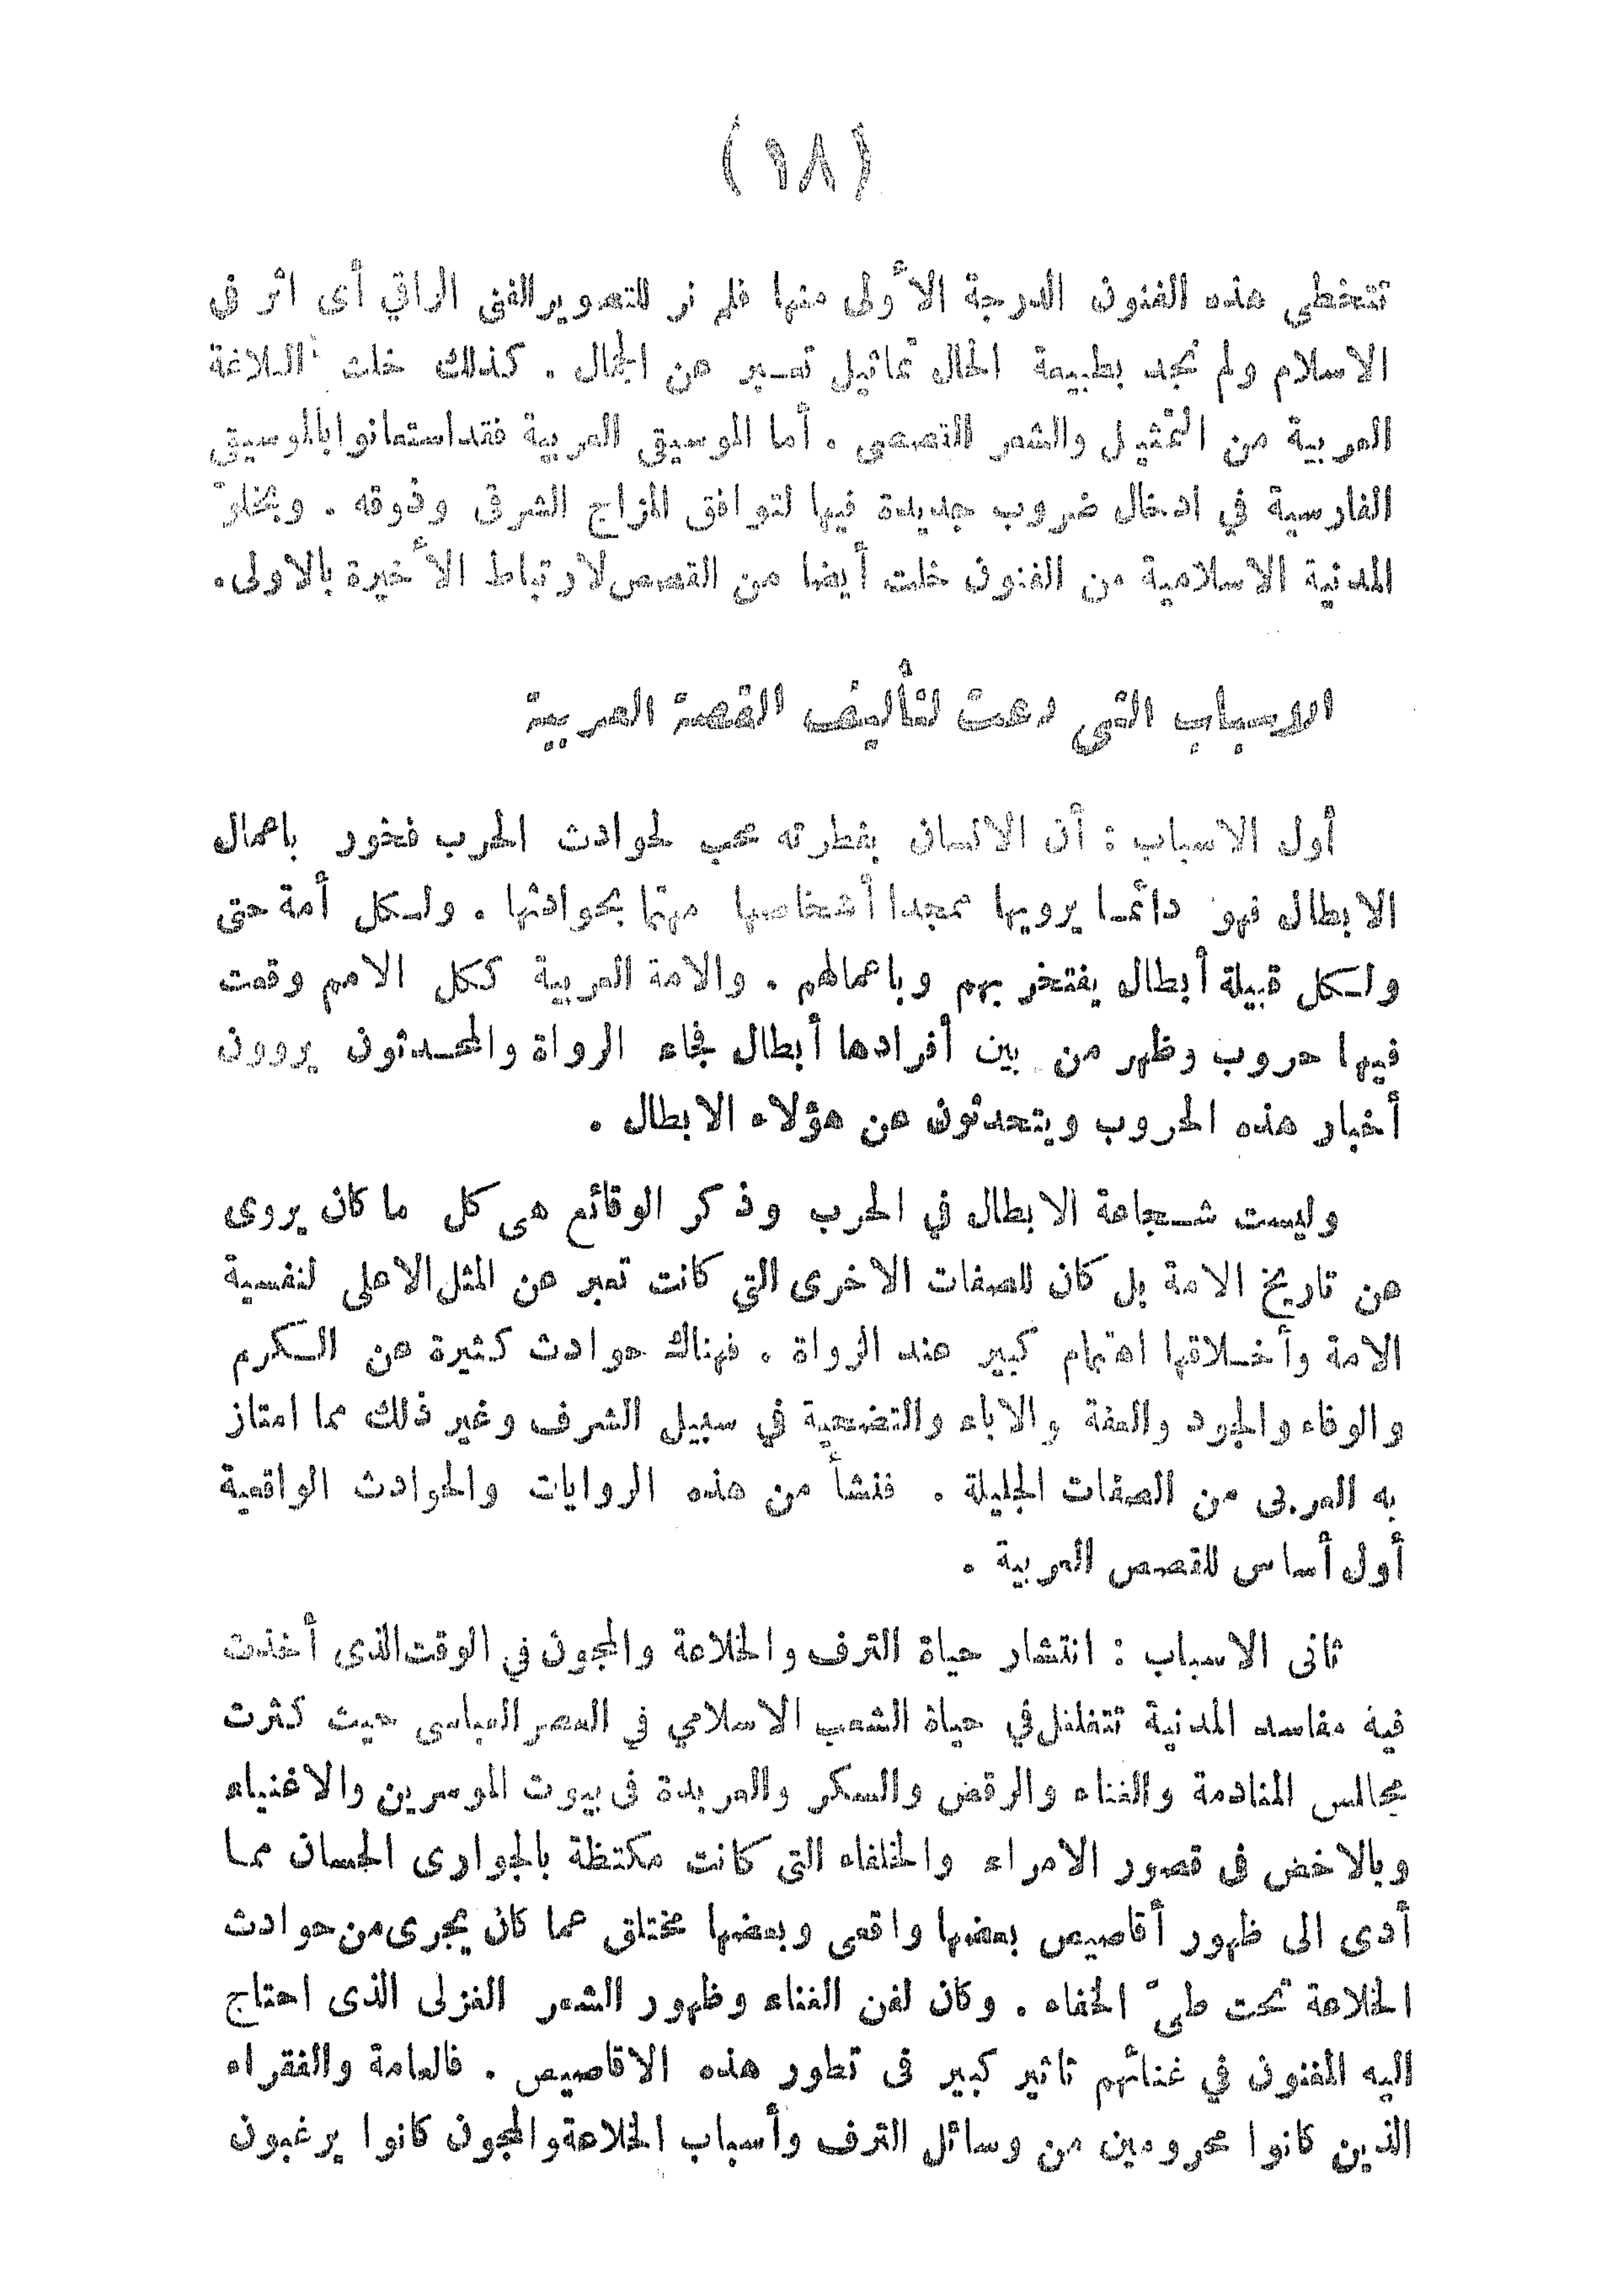 (١٨)
تتخطى هذه الفنون الدرجة الأولى منها فلم نر للتصوير الفنى الراقي أى اثر فى
الاسلام ولم نجد بطبيعة الحال تماثيل تعبر عن الجمال . كذلك خلت البلاغة
العربية من التمثيل والشعر القصصى . أما الموسيقى العربية فقد استعانوا بالموسيقى
الفارسية في ادخال ضروب جديدة فيها لتوافق المزاج الشرقى وذوقه . وبخلوّ
المدنية الاسلامية من الفنون خلت أيضا من القصص لارتباط الأخيرة بالاولى .
الاسباب التى دعت لتأليف القصة العربية
أول الاسباب : أن الانسان بفطرته محب لحوادث الحرب فخور باعمال
الابطال فهو دائما يرويها ممجدا أشخاصها مهتما بحوادثها . ولكل أمة حتى
ولكل قبيلة أبطال يفتخر بهم وباعمالهم . والامة العربية ككل الامم وقعت
فيها حروب وظهر من بين أفرادها أبطال فجاء الرواة والمحدثون يروون
أخبار هذه الحروب ويتحدثون عن هؤلاء الابطال .
وليست شجاعة الابطال في الحرب وذكر الوقائع هى كل ما كان يروى
عن تاريخ الامة بل كان للصفات الاخرى التي كانت تعبر عن المثل الاعلى لنفسية
الامة وأخلاقها اهتمام كبير عند الرواة . فهناك حوادث كثيرة عن الكرم
والوفاء والجود والعفة والاباء والتضحية في سبيل الشرف وغير ذلك مما امتاز
به العربى من الصفات الجليلة . فنشأ من هذه الروايات والحوادث الواقعية
أول أساس للقصص العربية .
ثانى الاسباب : انتشار حياة الترف والخلاعة والمجون في الوقت الذى أخذت
فيه مفاسد المدنية تتغلغل في حياة الشعب الاسلامي في العصر العباسى حيث كثرت
مجالس المنادمة والغناء والرقص والسكر والعربدة فى بيوت الموسرين والاغنياء
وبالاخص فى قصور الامراء والخلفاء التى كانت مكتظة بالجوارى الحسان مما
أدى الى ظهور أقاصيص بعضها واقعى وبعضها مختلق عما كان يجرى من حوادث
الخلاعة تحت طىّ الخفاء . وكان لفن الغناء وظهور الشعر الغزلى الذى احتاج
اليه المغنون في غنائهم تاثير كبير فى تطور هذه الاقاصيص . فالعامة والفقراء
الذين كانوا محرومين من وسائل الترف وأسباب الخلاعة والمجون كانوا يرغبون